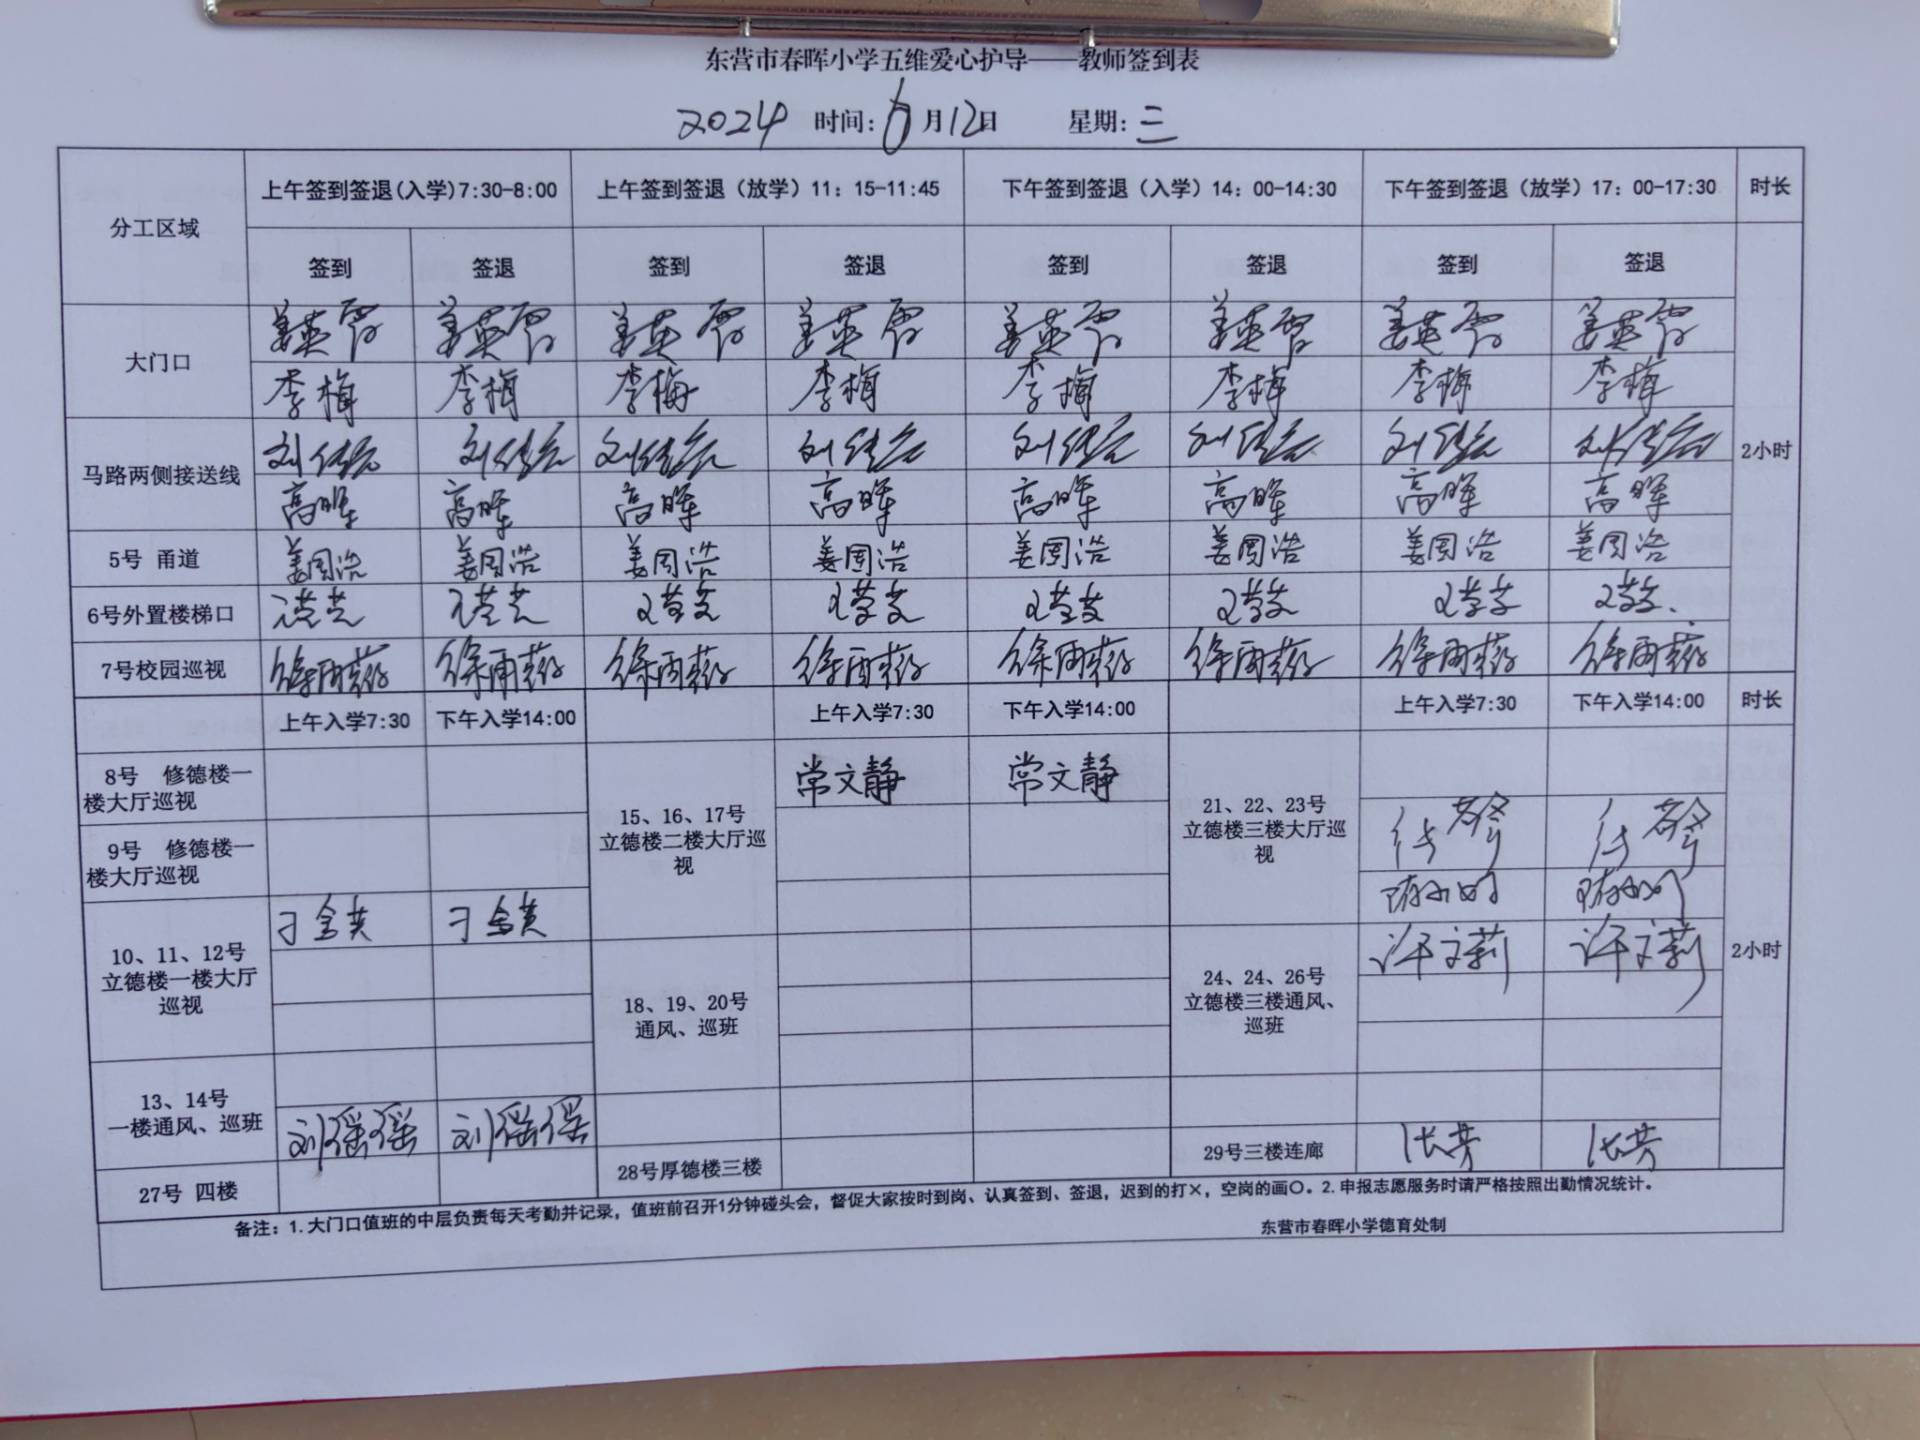 东营市春晖小学五维爱心护导——教师签到表
2024 时间：6月12日 星期：三
分工区域 上午签到签退(入学)7:30-8:00 上午签到签退（放学）11：15-11:45 下午签到签退（入学）14：00-14:30 下午签到签退（放学）17：00-17:30 时长
签到 签退 签到 签退 签到 签退 签到 签退
大门口 姜英霞 姜英霞 姜英霞 姜英霞 姜英霞 姜英霞 姜英霞 姜英霞
李梅 李梅 李梅 李梅 李梅 李梅 李梅 李梅
马路两侧接送线 2小时
高晖 高晖 高晖 高晖 高晖 高晖 高晖 高晖
5号 甬道 姜国浩 姜国浩 姜国浩 姜国浩 姜国浩 姜国浩 姜国浩 姜国浩
6号外置楼梯口
7号校园巡视
上午入学7:30 下午入学14:00 上午入学7:30 下午入学14:00 上午入学7:30 下午入学14:00 时长
8号 修德楼一
楼大厅巡视
常文静 常文静
9号 修德楼一
楼大厅巡视
15、16、17号
立德楼二楼大厅巡
视
21、22、23号
立德楼三楼大厅巡
视
10、11、12号
立德楼一楼大厅
巡视
18、19、20号
通风、巡班
24、24、26号
立德楼三楼通风、
巡班
许文莉 许文莉
2小时
13、14号
一楼通风、巡班
刘瑶瑶 刘瑶瑶
27号 四楼 28号厚德楼三楼 29号三楼连廊 张芳 张芳
备注：1.大门口值班的中层负责每天考勤并记录，值班前召开1分钟碰头会，督促大家按时到岗、认真签到、签退，迟到的打×，空岗的画〇。2.申报志愿服务时请严格按照出勤情况统计。
东营市春晖小学德育处制